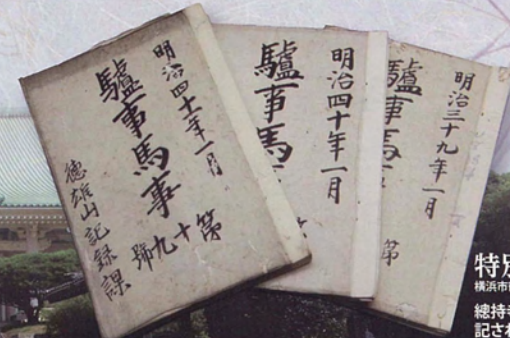 明治四十一年一月
驢事馬事
第十九號
德雄山記録課
明治四十年一月
驢事馬
明治三十九年一月
驢事馬
第
特別
横浜市
總持寺
記され